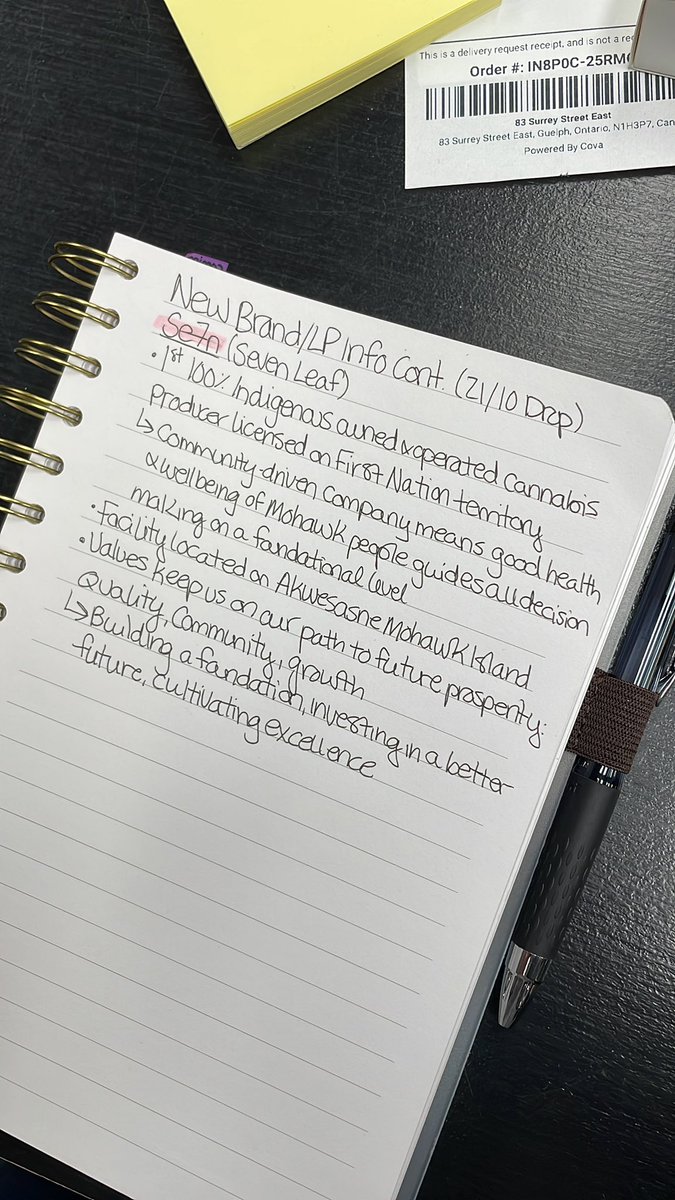 This is a delivery request receipt, and is not a rec
Order #: IN8P0C-25RM
83 Surrey Street East
83 Surrey Street East, Guelph, Ontario, N1H3P7, Can
Powered By Cova
New Brand/LP Info Cont. (21/10 Drop)
Se7n (Seven Leaf)
• 1st 100% Indigenous owned & operated cannabis
producer licensed on First Nation territory
↳ Community-driven company means good health
& wellbeing of Mohawk people guides all decision
making on a foundational level
• Facility located on Akwesasne Mohawk Island
• Values keep us on our path to future prosperity:
Quality, Community, growth
↳ Building a foundation, investing in a better
future, cultivating excellence